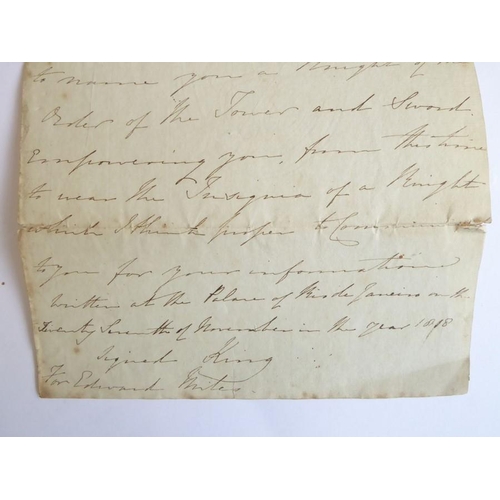 to name you a Knight of the
Order of the Tower and Sword.
Empowering you, from this time
to wear the Insignia of a Knight
which I think proper to Commun
to you for your information
written at the Palace of Rio de Janeiro on the
Twenty Seventh of November in the year 1818
Signed King
For Edward